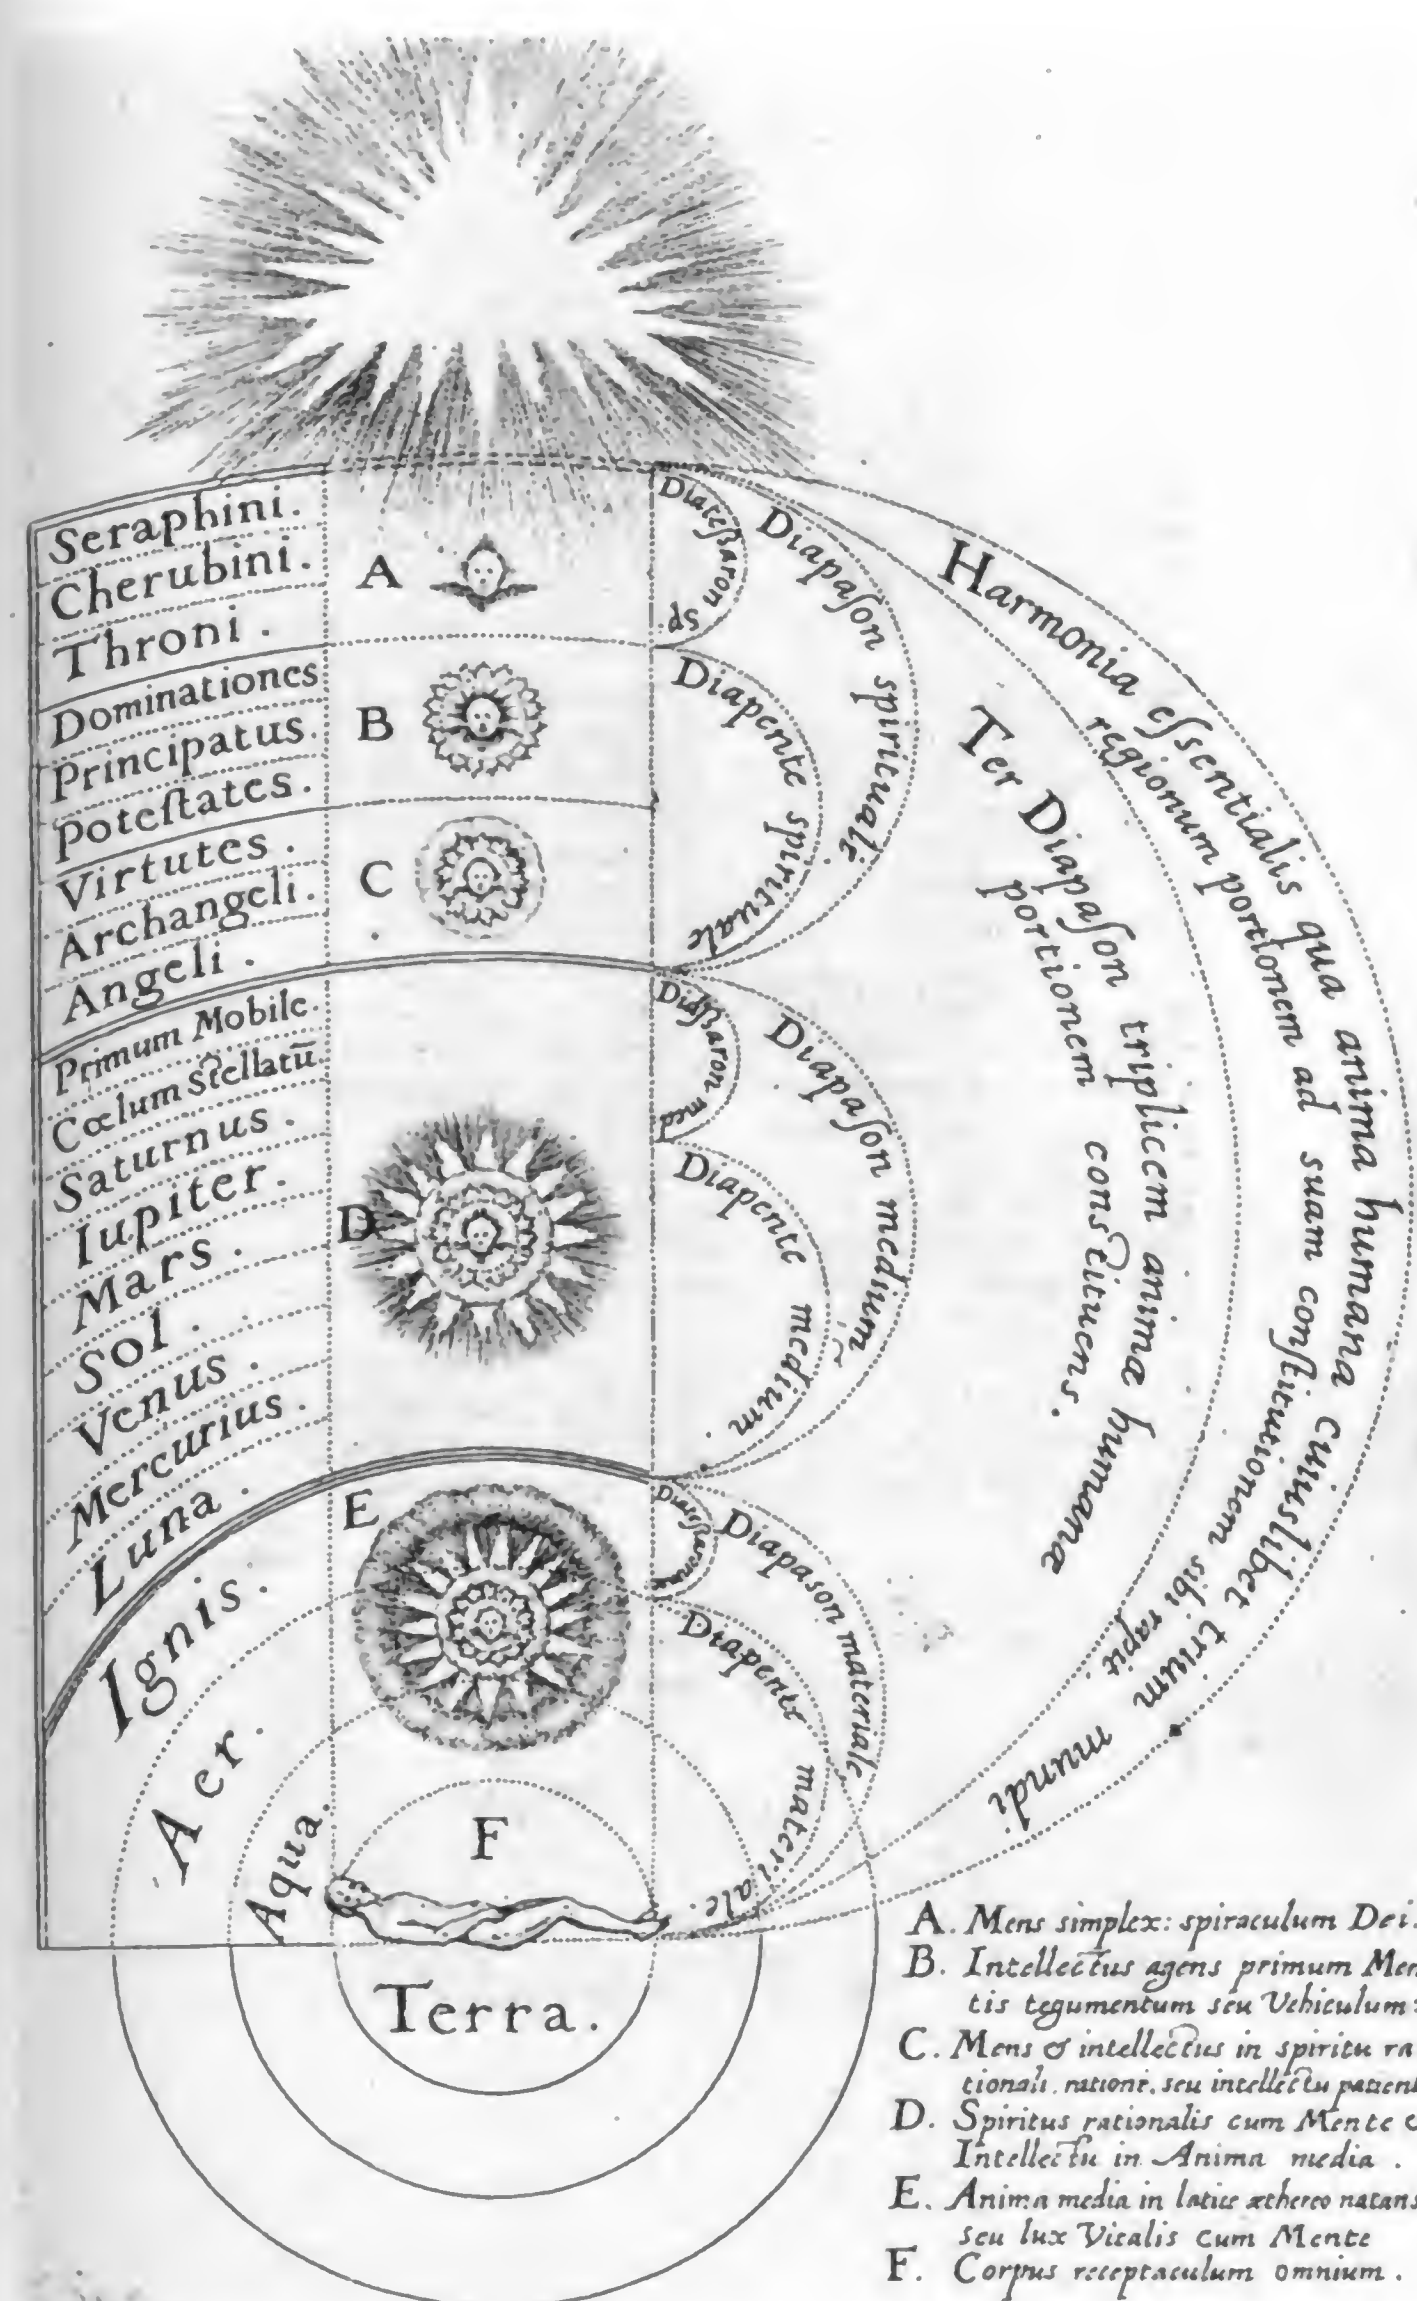 Seraphini.
Cherubini.
Throni.
Dominationes
Principatus.
Poteſtates.
Virtutes.
Archangeli.
Angeli.
Primum Mobile.
Cœlum Stellatū.
Saturnus.
Iupiter.
Mars.
Sol.
Venus.
Mercurius.
Luna.
Ignis.
Aer.
Aqua.
Terra.
A
B
C
D
E
F
Diateſſaron sp.
Diapaſon spirituale.
Diapente spirituale
Diaſſaron med.
Diapaſon medium
Diapente medium
Diapason materiale,
Diapente materiale.
Harmonia eſsentialis qua anima humana cuiuslibet trium mundi
regionum portionem ad suam conſtitutionem sibi rapit.
Ter Diapaſon triplicem animæ humanæ
portionem constituens.
A. Mens simplex: spiraculum Dei.
B. Intellectus agens primum Men
tis tegumentum seu Vehiculum:
C. Mens & intellectus in spiritu ra
tionali, ratione, seu intellectu patient
D. Spiritus rationalis cum Mente
Intellectu in Anima media.
E. Anima media in latice æthereo natans
seu lux Vitalis cum Mente
F. Corpus receptaculum omnium.